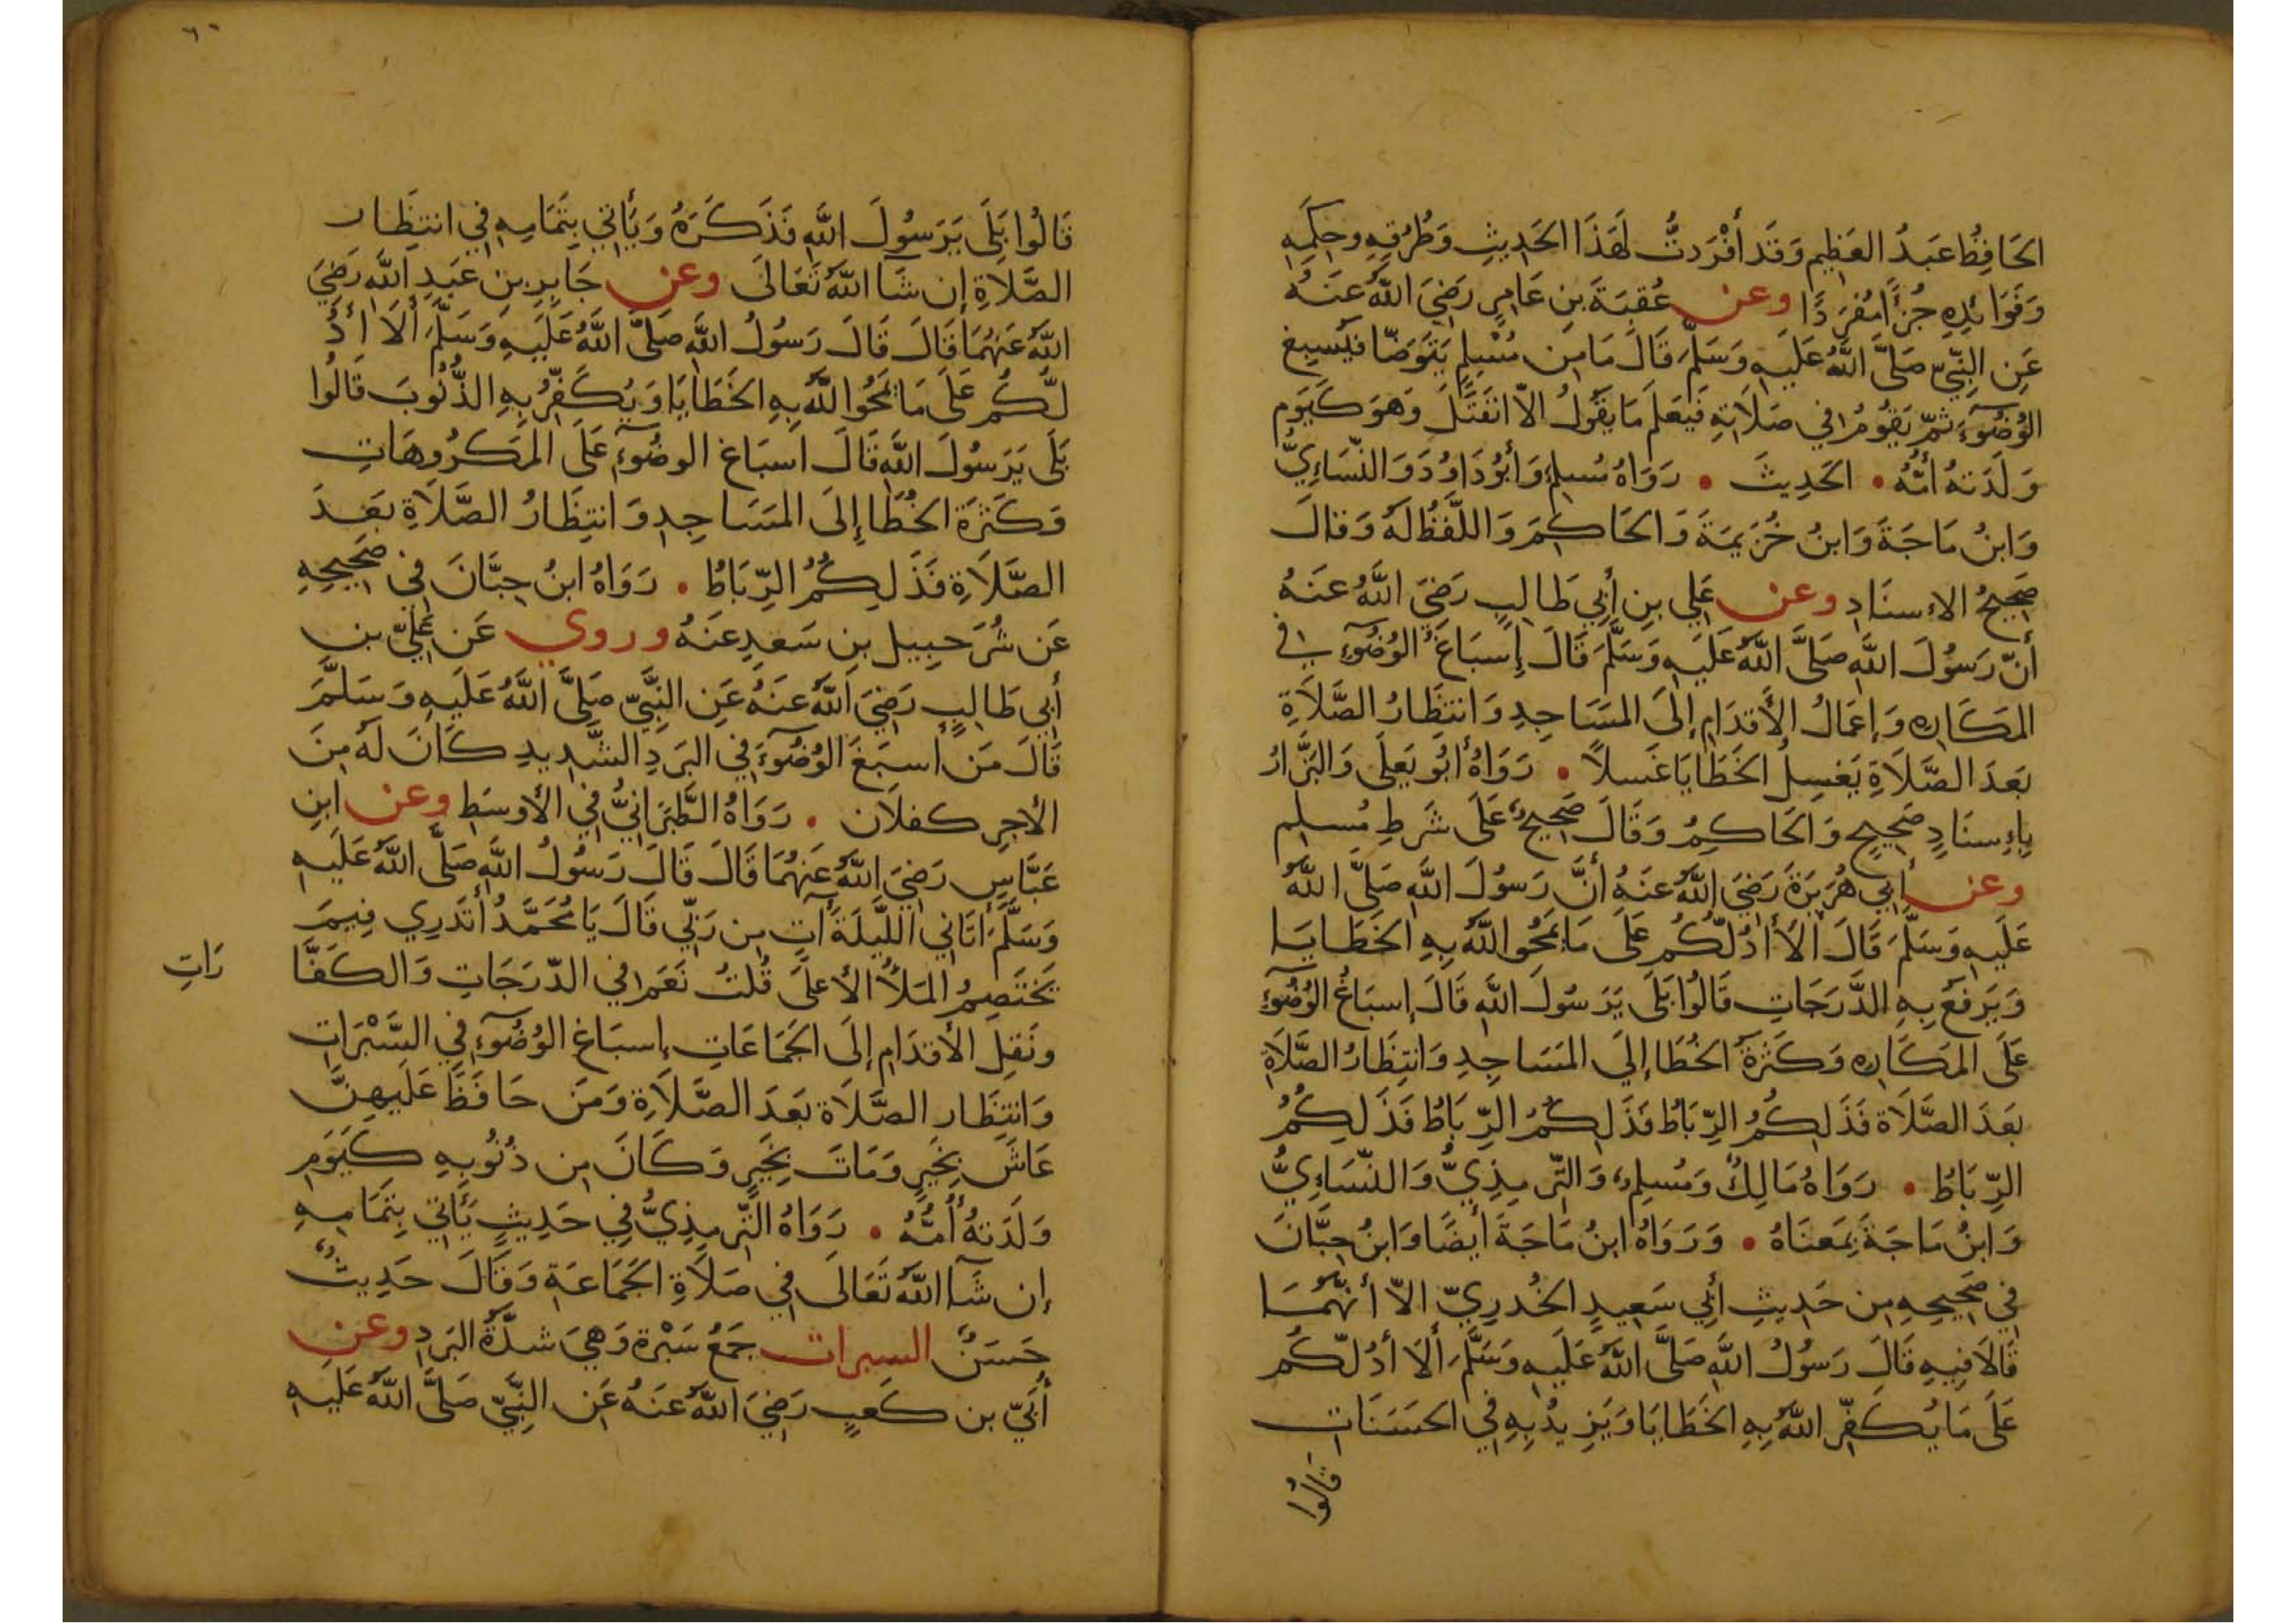 الحَافِظُ عَبدُ العَظِيمِ وَقَد أَفْرَدتُّ لَهَذَا الحَدِيثِ وَطُرُقِهِ وحِكَمِهِ
وَفَوَائِدِهِ جُزْأً مُفرَدًا وعن عُقبَةَ بنِ عَامِرٍ رَضِيَ اللَّهُ عَنهُ
عَنِ النَّبِيِّ صَلَّى اللَّهُ عَلَيهِ وَسَلَّمَ قَالَ مَا مِن مُسْلِمٍ يَتَوَضَّا فَيُسبِغ
الوُضُوءَ ثمّ يَقُومُ في صَلَاتِهِ فَيَعلَم مَا يَقُولُ الاّ انفَتَلَ وَهوَ كَيَوم
وَلَدَتهُ أُمُّهُ • الحَدِيثَ • رَوَاهُ مُسلِم وَأَبُو دَاوُدَ وَالنّسَاءِيُّ
وَابنُ مَاجَةَ وَابنُ خُزَيمَةَ وَالحَاكِمَ وَاللَّفظُ لَهُ وَقالَ
صَحِيحُ الاءسنَادِ وعن عَلِي بنِ أَبِي طَالِبٍ رَضِيَ اللَّهُ عَنهُ
أَنّ رَسُولَ اللَّهِ صَلَّى اللَّهُ عَلَيهِ وَسَلَّمَ قَالَ إِسبَاغُ الوُضُوءِ في
المَكَارِه وَإعمَالُ الأَقدَامِ إِلَى المسَاجِدِ وَانتظَارُ الصَّلَاةِ
بَعدَ الصَّلَاةِ يَغسِلُ الخَطَايَا غَسلًا • رَوَاهُ أَبُو يَعلَى وَالبَزَّارُ
بِاءِسنَادٍ صَحِيحٍ وَالحَاكِمُ وَقَالَ صَحِيحٌ عَلَى شَرطِ مُسلِم
وعن أَبِي هُرَيرَةَ رَضِيَ اللَّهُ عَنهُ أَنَّ رَسُولَ اللَّهِ صَلَّى اللَّهُ
عَلَيهِ وَسَلَّمَ قَالَ أَلَا أَدُلّكُم عَلَى مَا يَمحُو اللَّهُ بِهِ الخَطَايَا
وَيَرفَعُ بِهِ الدَّرَجَاتِ قَالُوا بَلَى يَرَسُولَ اللَّهِ قَالَ إِسبَاغُ الوُضُوءِ
عَلَى المَكَارِه وَكَثرَةُ الخُطَا إِلَى المَسَاجِدِ وَانتِظَارُ الصَّلَاةِ
بَعَدَ الصَّلَاة فَذَلِكُمُ الرِّبَاطُ فَذَلِكُمُ الرِّبَاطُ فَذَلِكُمُ
الرِّبَاطُ • رَوَاهُ مَالِكٌ وَمُسلِم وَالتِّرمِذِيُّ وَالنّسَاءِيُّ
وَابنُ مَاجَةَ بِمَعنَاهُ • وَرَوَاهُ ابنُ مَاجَةَ أَيضًا وَابنُ حِبَّانَ
فِي صَحِيحِهِ مِن حَدِيثِ أَبِي سَعِيدٍ الخُدرِيّ الاّ أَنَّهُمَا
قَالَا فِيهِ قَالَ رَسُولُ اللَّهِ صَلَّى اللَّهُ عَلَيهِ وَسَلَّمَ أَلَا أَدُلّكُم
عَلَى مَا يُكَفِّر اللَّهُ بِهِ الخَطَايَا وَيَزِيدُ بِهِ فِي الحَسَنَاتِ
قالُوا
٦٠
قَالُوا بَلَى يَرَسُولَ اللَّهِ فَذَكَرَهُ وَيَأتِي بِتَمَامِهِ فِي انتِظَار
الصَّلَاةِ إن شَآ اللَّهُ تَعَالَى وعن جَابِرِ بنِ عَبدِ اللَّه رَضِيَ
اللَّهُ عَنهُمَا قَالَ قَالَ رَسُولُ اللَّهِ صَلَّى اللَّهُ عَلَيهِ وَسَلَّمَ أَلَا أَدُ
لّكُم عَلَى مَا يَمحُو اللَّهُ بِهِ الخَطَايَا وَيُكَفِّرُ بِهِ الذُّنُوبَ قَالُوا
بَلَى يَرَسُولَ اللَّهِ قَالَ اسبَاغ الوضُوءِ عَلَى المَكرُوهَاتِ
وَكَثرَة الخُطَا إِلَى المسَاجِدِ وَانتِظَارُ الصَّلَاةِ بَعدَ
الصَّلَاةِ فَذَلِكُمُ الرِّبَاطُ • رَوَاهُ ابنُ حِبَّانَ فِي صَحِيحِهِ
عَن شُرَحبِيل بنِ سَعدٍ عَنهُ وروي عَن عَلِيّ بن
أَبِي طَالِبٍ رَضِيَ اللَّهُ عَنهُ عَنِ النَّبِيِّ صَلَّى اللَّهُ عَلَيهِ وَسَلَّمَ
قَالَ مَن أَسبَغَ الوُضُوءَ فِي البَردِ الشَّدِيدِ كَانَ لَهُ مِنَ
الأَجرِ كفلَان • رَوَاهُ الطَّبَرَانِيُّ فِي الأَوسَطِ وعن ابنِ
عَبَّاسٍ رَضِيَ اللَّهُ عَنهُمَا قَالَ قَالَ رَسُولُ اللَّهِ صَلَّى اللَّهُ عَلَيهِ
وَسَلَّمَ أَتَانِي اللَّيلَةَ آتٍ مِن رَبِّي قَالَ يَا مُحَمَّدُ أَتَدرِي فِيمَ
يَختَصِمُ المَلَأُ الأَعلَى قُلتُ نَعَم فِي الدّرَجَاتِ وَالكَفَّا
رَاتِ
ونَقلِ الأَقدَامِ إِلَى الجَمَاعَاتِ إِسبَاغ الوُضُوءِ فِي السَّبْرَاتِ
وَانتِظَار الصَّلَاة بَعدَ الصَّلَاةِ وَمَن حَافَظَ عَلَيهِنَّ
عَاشَ بِخَيرٍ وَمَاتَ بِخَيرٍ وَكَانَ مِن ذُنُوبِهِ كَيَومِ
وَلَدَتهُ أُمُّهُ • رَوَاهُ التِّرمِذِيُّ فِي حَدِيثٍ يَأتِي بِتَمَامِهِ
إن شَآ اللَّهُ تَعَالَى فِي صَلَاةِ الجَمَاعَةِ وَقَالَ حَدِيثٌ
حَسَنٌ السبرات جَمَعُ سَبْرَة وَهِيَ شدَّةُ البَردِ وعن
أُبَيّ بن كَعبٍ رَضِيَ اللَّهُ عَنهُ عَنِ النَّبِيِّ صَلَّى اللَّهُ عَلَيهِ